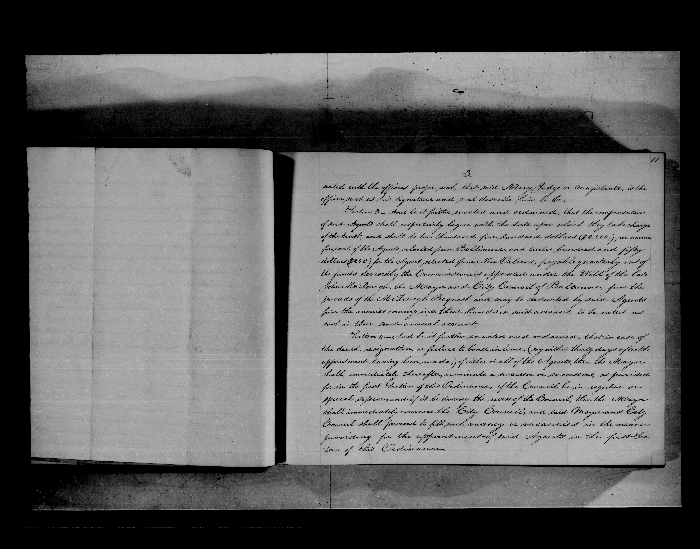 11
3.
nected with the official proper seal, that said Notary, Judge or Magistrate, is the
officer and as his signature and seal describe him to be.
Section 3. And be it further enacted and ordained, that the compensation
of said Agents shall respectively begin with the date upon which they take charge
of the trust, and shall be two thousand five hundred dollars ($2,500), per annum
for each of the Agents selected from Baltimore, and twelve hundred and fifty
dollars ($1250) for the Agent selected from New Orleans, payable quarterly out of
the funds received by the Commissioners appointed under the Will of the late
John McDonogh, the Mayor and City Council of Baltimore for the
proceeds of the McDonogh Bequest and may be deducted by said Agents
from the moneys coming into their hands as said accrued, to be noted as
such in their semi annual account.
Section And be it further enacted and ordained, that in case of
the death, resignation or failure to bond in time, (say within thirty days after his
appointment having been made) of either or all of the Agents, then the Mayor
shall immediately thereafter, nominate a successor or successors, as provided
for in the first Section of this Ordinance, if the Council be in regular or
special session and if it be during the recess of the Council, then the Mayor
shall immediately convene the City Council, and said Mayor and City
Council shall proceed to fill such vacancy or vacancies in the manner
providing for the appointment of said Agents in the first Sec
tion of this Ordinance